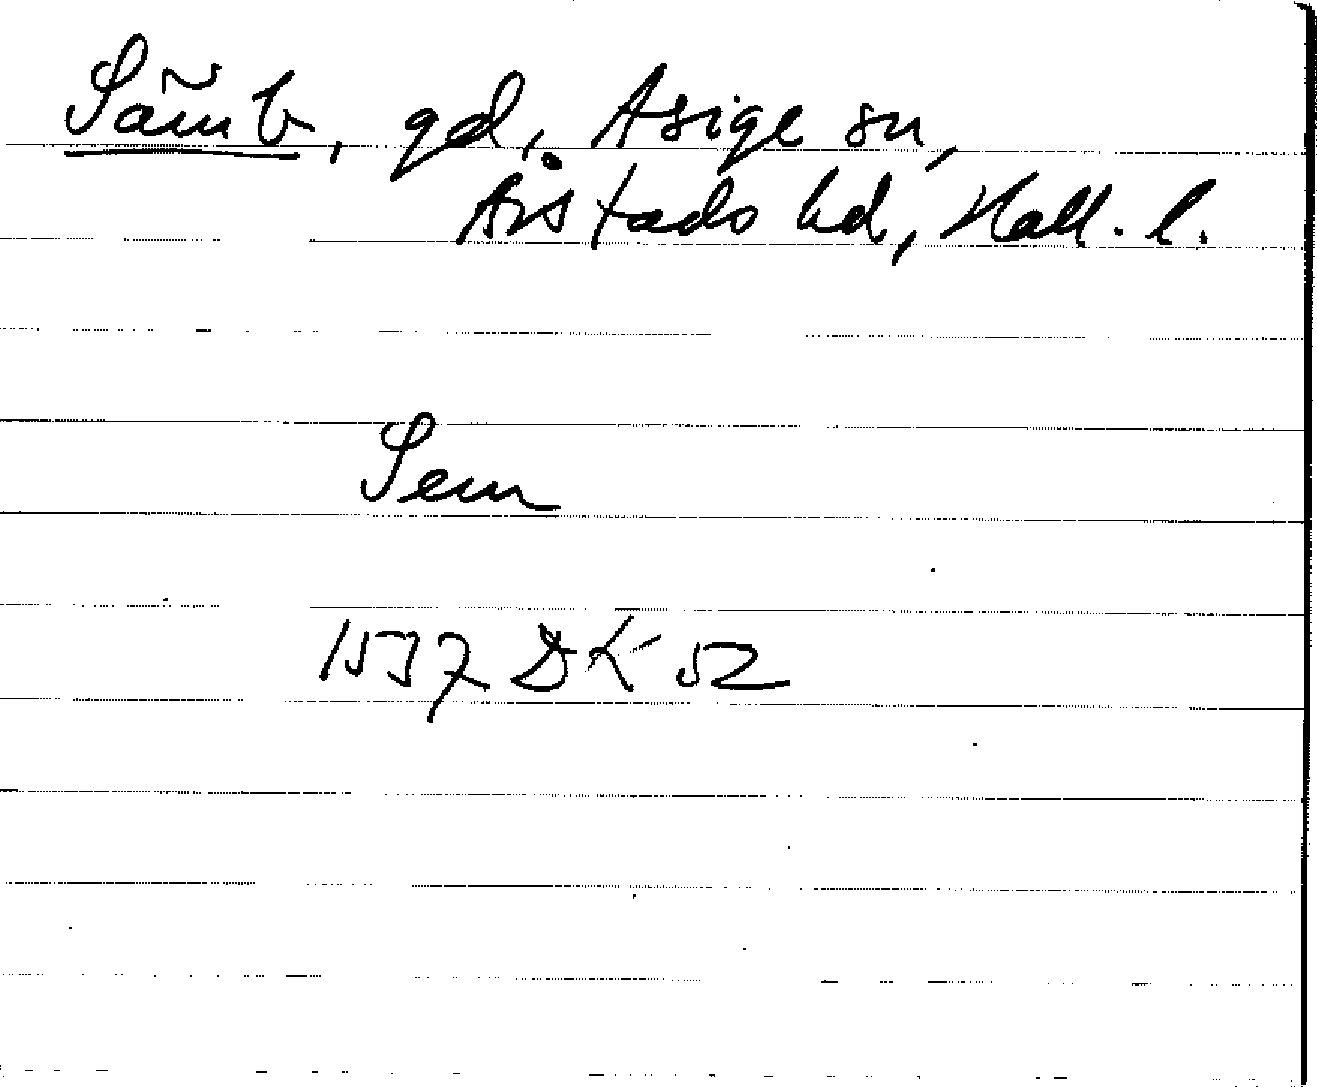 Sämb, gd, Asige sn,
Årstads hd, Hall. l.
Sem
1537 DK 52